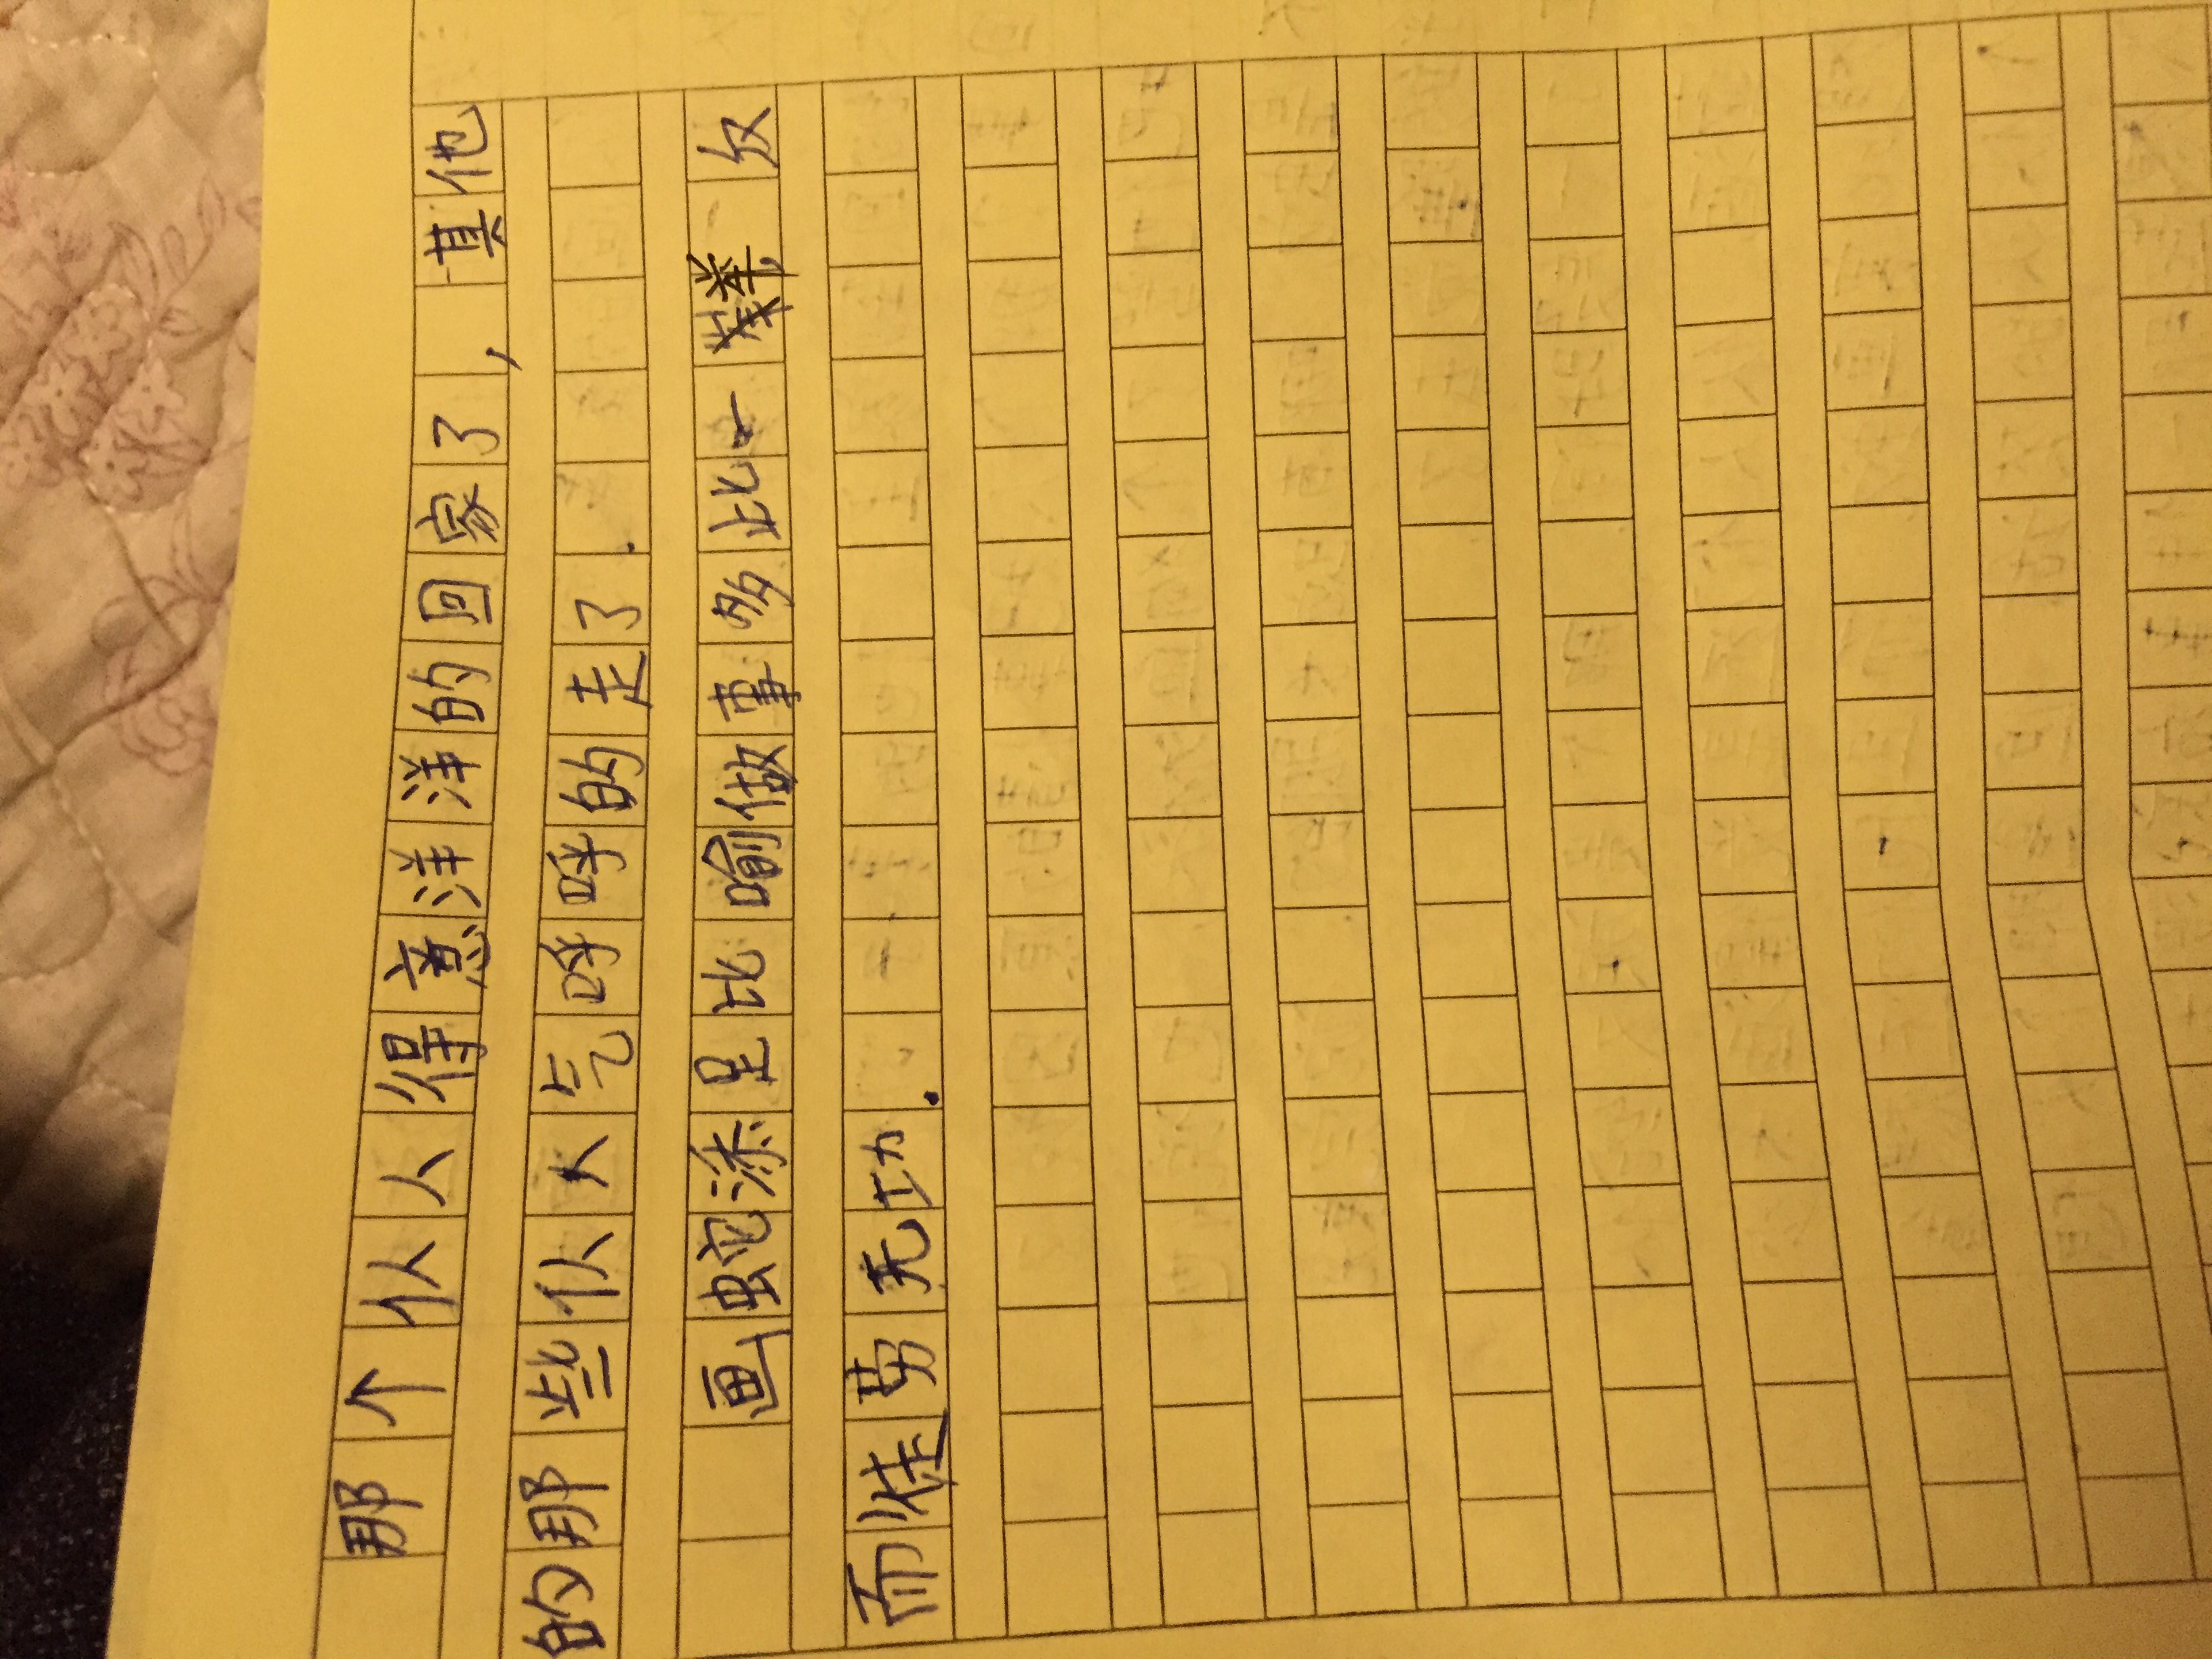 那个仆人得意洋洋的回家了，其他
的那些仆人气呼呼的走了.
画蛇添足比喻做事多此一举，反
而徒劳无功.